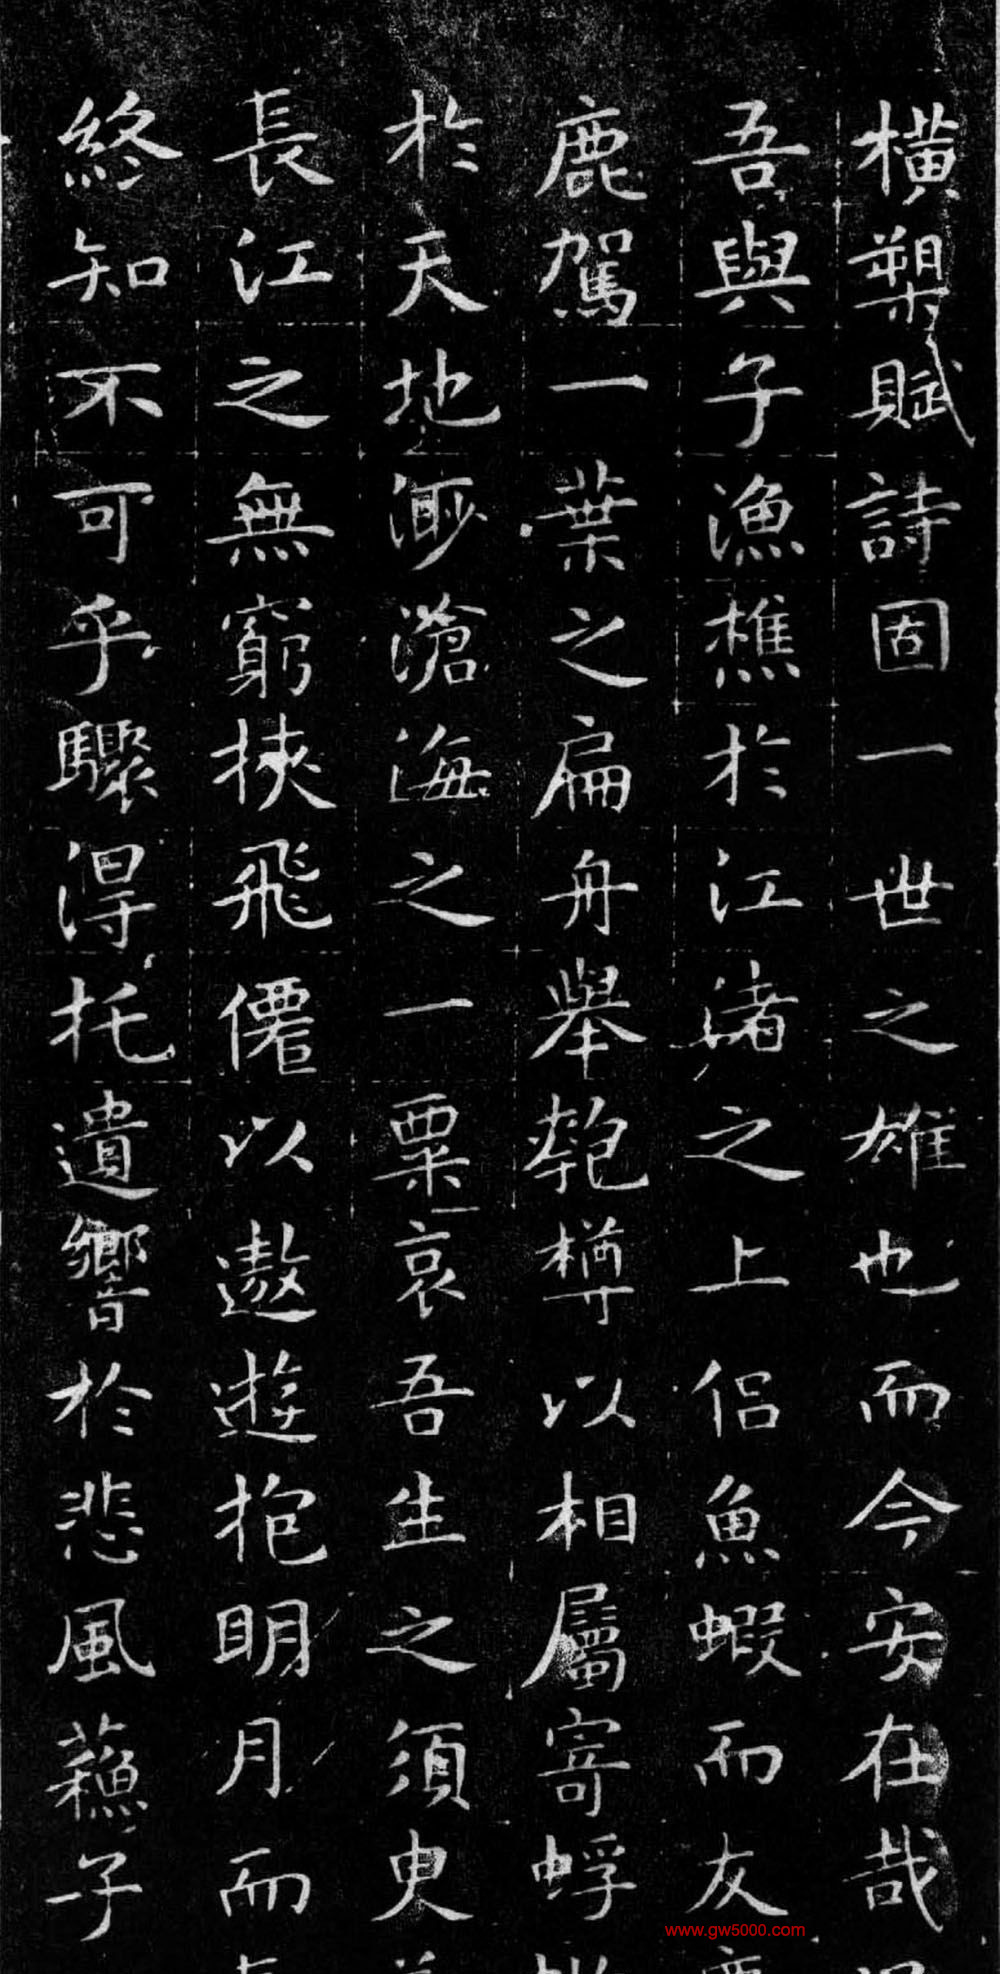 橫槊賦詩固一世之雄也而今安在哉
吾與子漁樵於江渚之上侶魚蝦而友
鹿駕一葉之扁舟舉匏樽以相屬寄蜉
於天地渺滄海之一粟哀吾生之須臾
長江之無窮挾飛僊以遨遊抱明月而
終知不可乎驟得托遺響於悲風蘓子
www.gw5000.com